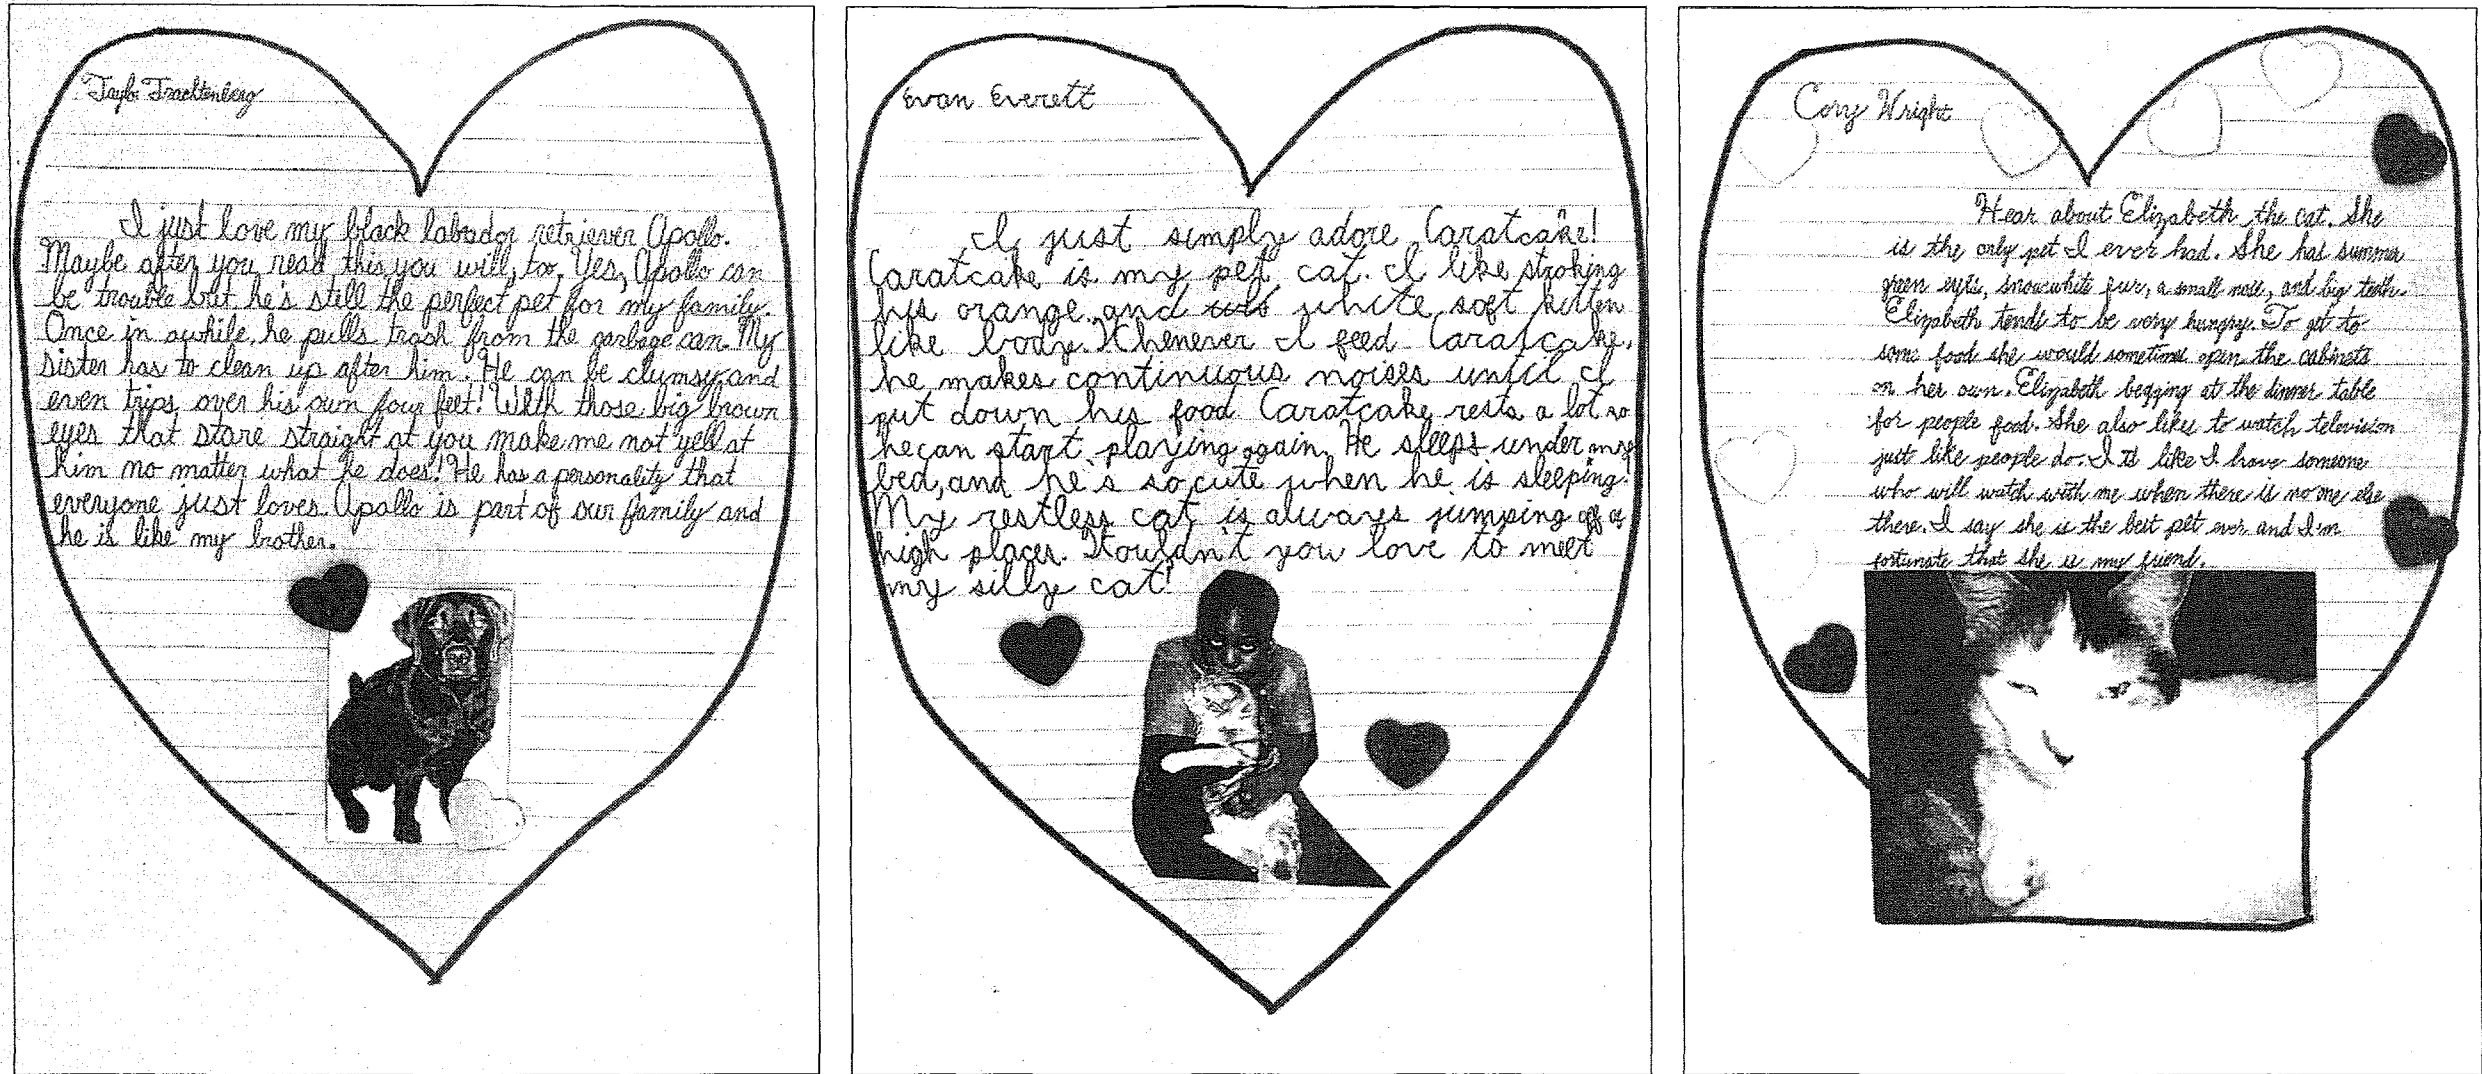 Trachtenberg
I just love my black labrador retriever Apollo.
Maybe after you read this you will, too. Yes, Apollo can
be trouble but he's still the perfect pet for my family.
Once in awhile, he pulls trash from the garbage can. My
sister has to clean up after him. He can be clumsy and
even trips over his own four feet! With those big brown
eyes that stare straight at you make me not yell at
him no matter what he does! He has a personality that
everyone just loves. Apollo is part of our family and
he is like my brother.
Evan Everett
I just simply adore Caratcake!
Caratcake is my pet cat. I like stroking
his orange and white soft kitten
like body. Whenever I feed Caratcake,
he makes continuous noises until I
put down his food. Caratcake rests a lot so
he can start playing again. He sleeps under my
bed, and he's so cute when he is sleeping!
My restless cat is always jumping off of
high places. Wouldn't you love to meet
my silly cat!
Cory Wright
Hear about Elizabeth the cat. She
is the only pet I ever had. She has summer
green eyes, snowwhite fur, a small nose, and big teeth.
Elizabeth tends to be very hungry. To get to
some food she would sometimes open the cabinets
on her own. Elizabeth begging at the dinner table
for people food. She also likes to watch television
just like people do. It's like I have someone
who will watch with me when there is no one else
there. I say she is the best pet ever and I'm
fortunate that she is my friend.